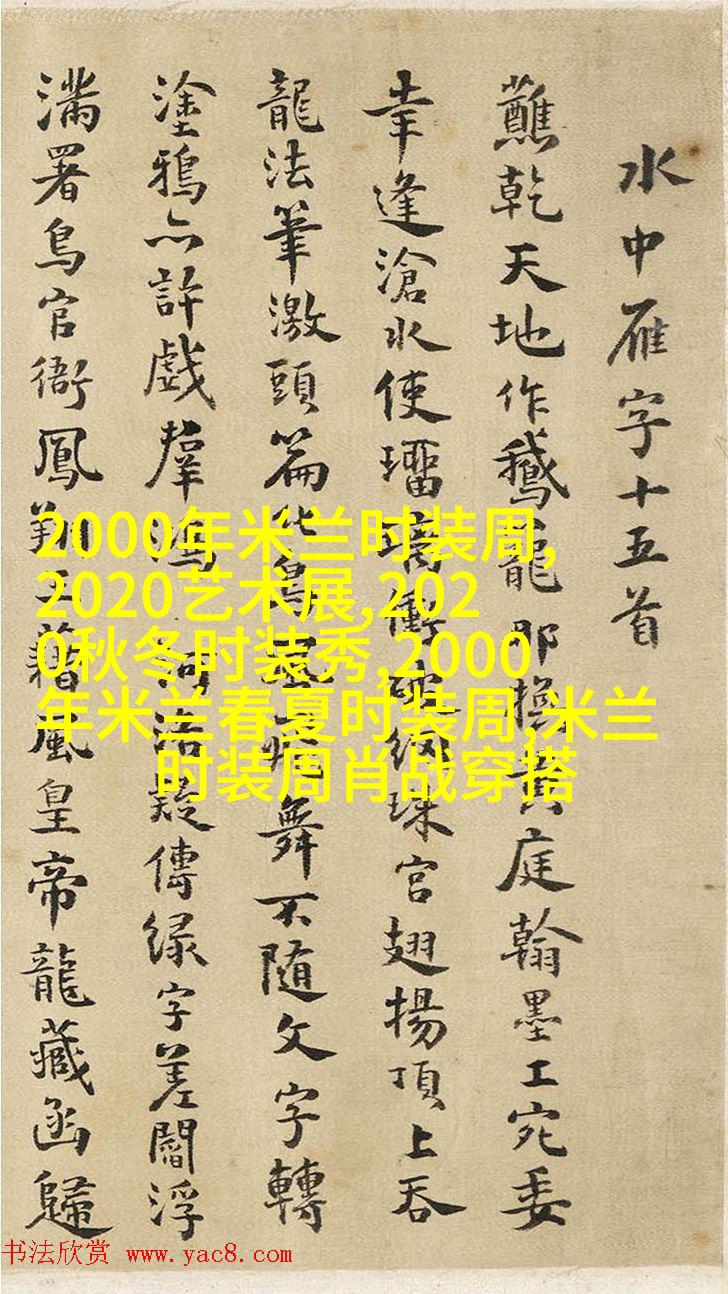 水中雁字十五首
蘸乾天地作鵝籠那換黃庭翰墨工宛委
幸逢滄水使衝破珠宮翅揚頂上吞
龍法筆激頭篇化鳥舞不随文字轉
塗鴉亦許戲羣鴻 河洛疑傳緑字差閻浮
滿署鳥官銜鳳風皇帝龍藏函歸
2000年米兰时装周,
2020艺术展,202
0秋冬时装秀,2000
年米兰春夏时装周,米兰
时装周肖战穿搭
书法欣赏 www.yac8.com